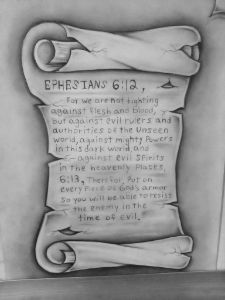 EPHESIANS 6:12,
For we are not fighting
against flesh and blood,
but against evil rulers and
authorities of the Unseen
world, against mighty Powers
in this dark world, and
against evil Spirits
in the heavenly Places,
6:13, Therefor, Put on
every Piece of God's armor
So you will be able to resist
the enemy in the
time of evil.